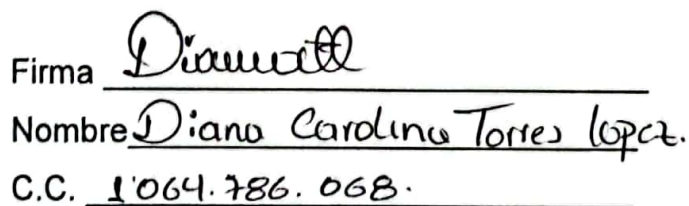 Firma
Nombre Diana Carolina Torres lopez.
C.C. 1'064.786.068.